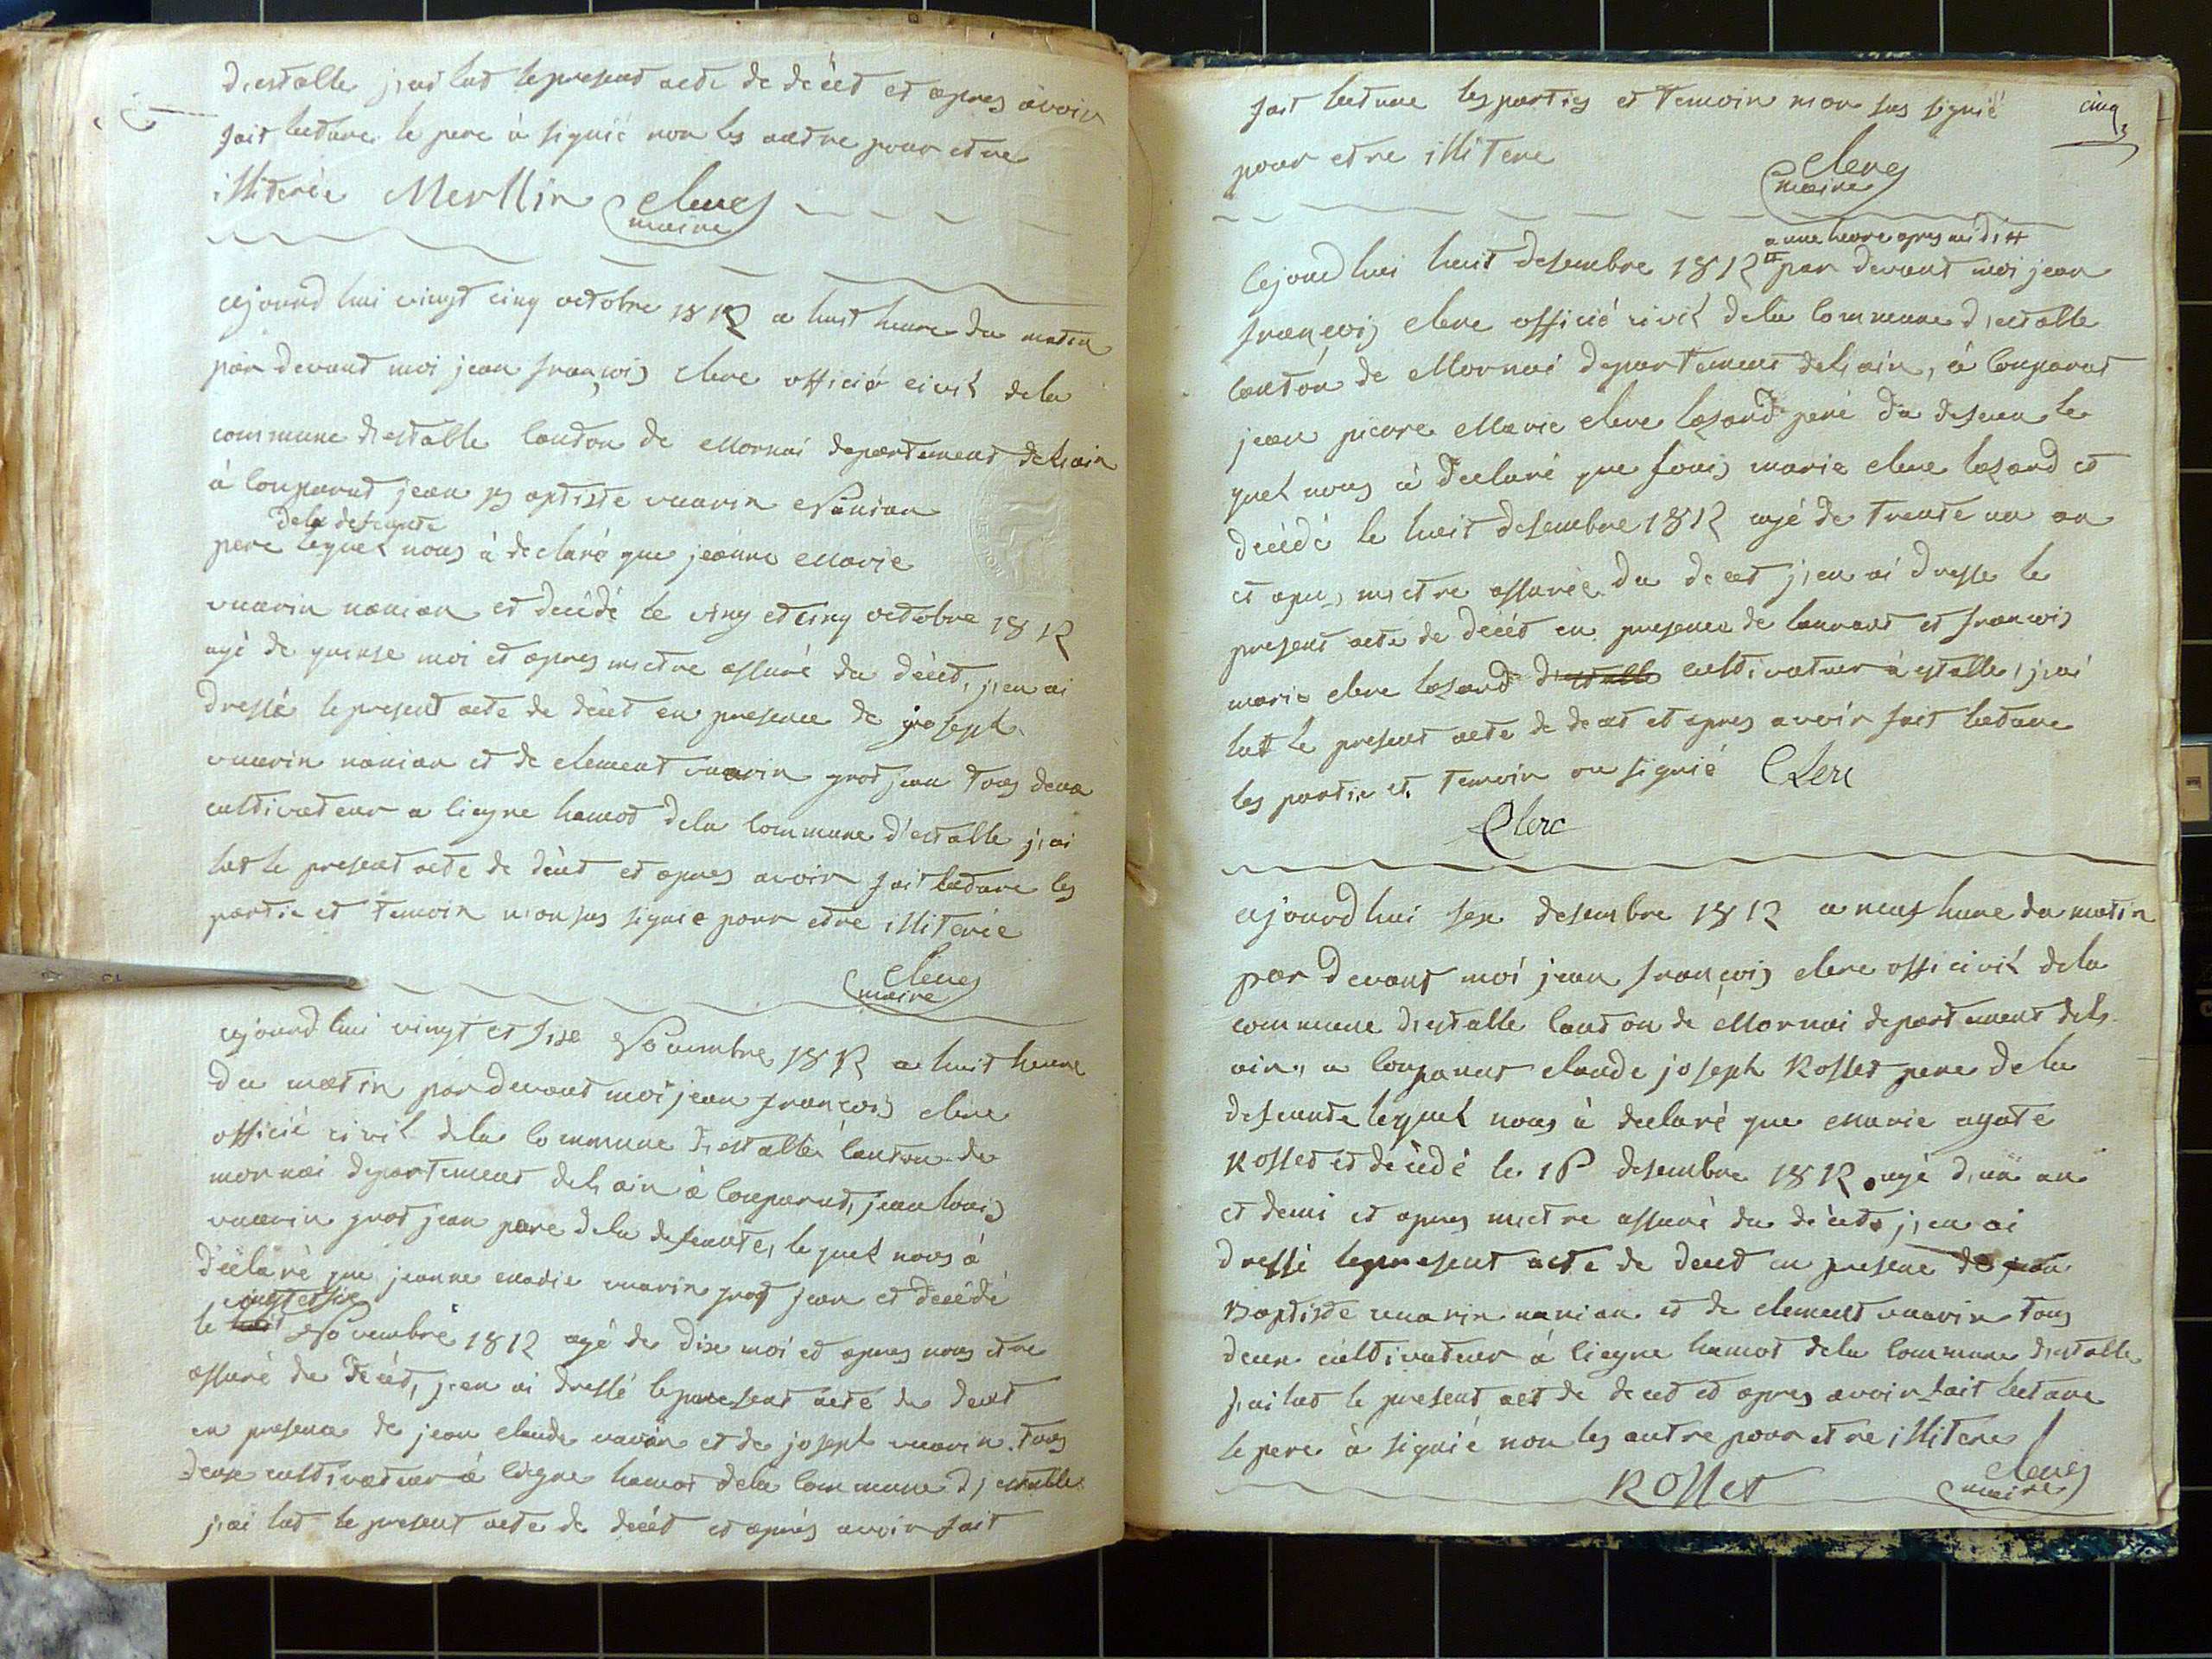 d'estalle j'ai lut le present acte de décet et apres avoir
fait lecture le pere à signié non les autre pour etre
illiterée Merllin clerc
maire
ajourd hui vingt cinq octobre 1812 a huit heure du matin
par devant moi jean françois clerc officié civil dela
commune d'estalle canton de Mornai departement de l'ain
à comparut jean baptiste vuarin Nanian
dela defeunte
pere lequel nous à declaré que jeanne Marie
vuarin nanian et decédé le vingt et cinq octobre 1812
agé de quinse moi et apres mettre assuré du décet, j'en ai
dressé le present acte de décet en presence de joseph
vuarin nanian et de clement vuarin grot jean tous deux
cultivateur a liegne hamot dela commune d'estalle j'ai
lut le present acte de décet et apres avoir fait lecture les
partie et temoin n'on sus signié pour etre illiterée
clerc
maire
ajourd hui vingt et sixe Novembre 1812 a huit heure
du matin par devant moi jean françois clerc
officié civil dela commune d'estalle canton de
mornai departement del'ain à comparut, jean louis
vuarin grot jean pere dela defeunte, lequel nous à
déclaré que jeanne marie vuarin grot jean et decédé
vingt et sixe
le huit Novembre 1812 agé de dixe moi et apres nous etre
assuré du décet, j'en ai dressé le present acte de decet
en presence de jean claude vuarin et de joseph vuarin tous
deuxe cultivateur à liegne hamot dela commune d'estalle
j'ai lut le present acte de décét et aprés avoir fait
cinq
fait lecture les parties et temoin n'on sus signié
pour etre illitere
clerc
maire
a une heure apres midi
Cejourd hui huit desembre 1812 par devant moi jean
françois clerc officié civil dela commune d'estalle
canton de Mornai departement del'ain, à comparut
jean pierre Marie clerc lasard peré du defeun le
quel nous à declaré que louis marie clerc lasard et
decédé le huit desembre 1812 agé de trente un an
et apres mettre assurée du decet j'en ai dresse le
present acte de décét en presence de laurant et francois
marie clerc lasard d'estalle cultivateur à estalle, j'ai
lut le present acte de decet et apres avoir fait lecture
les partie et temoin on signié Clerc
Clerc
ajourd hui sese desembre 1812 a neuf hure du matin
par devant moi jean françois clerc officivil dela
commune d'estalle canton de Mornai departement del'-
ain, a comparut claude joseph Rosset pere dela
defeunte lequel nous à declaré que marie agate
Rosset et decédé le 16 desembre 1812 agé d'un an
et demi et apres mettre assuré du décet, j'en ai
dressé lepresent acte de decet en presence de jean
Baptiste vuarin nanian et de clement vuarin tous
deux cultivateur à liegne hamot dela commune d'estalle
j'ai lut le present act de decet et apres avoir fait lecture
le pere à signié non les autre pour etre illitere
Rosset clerc
maire